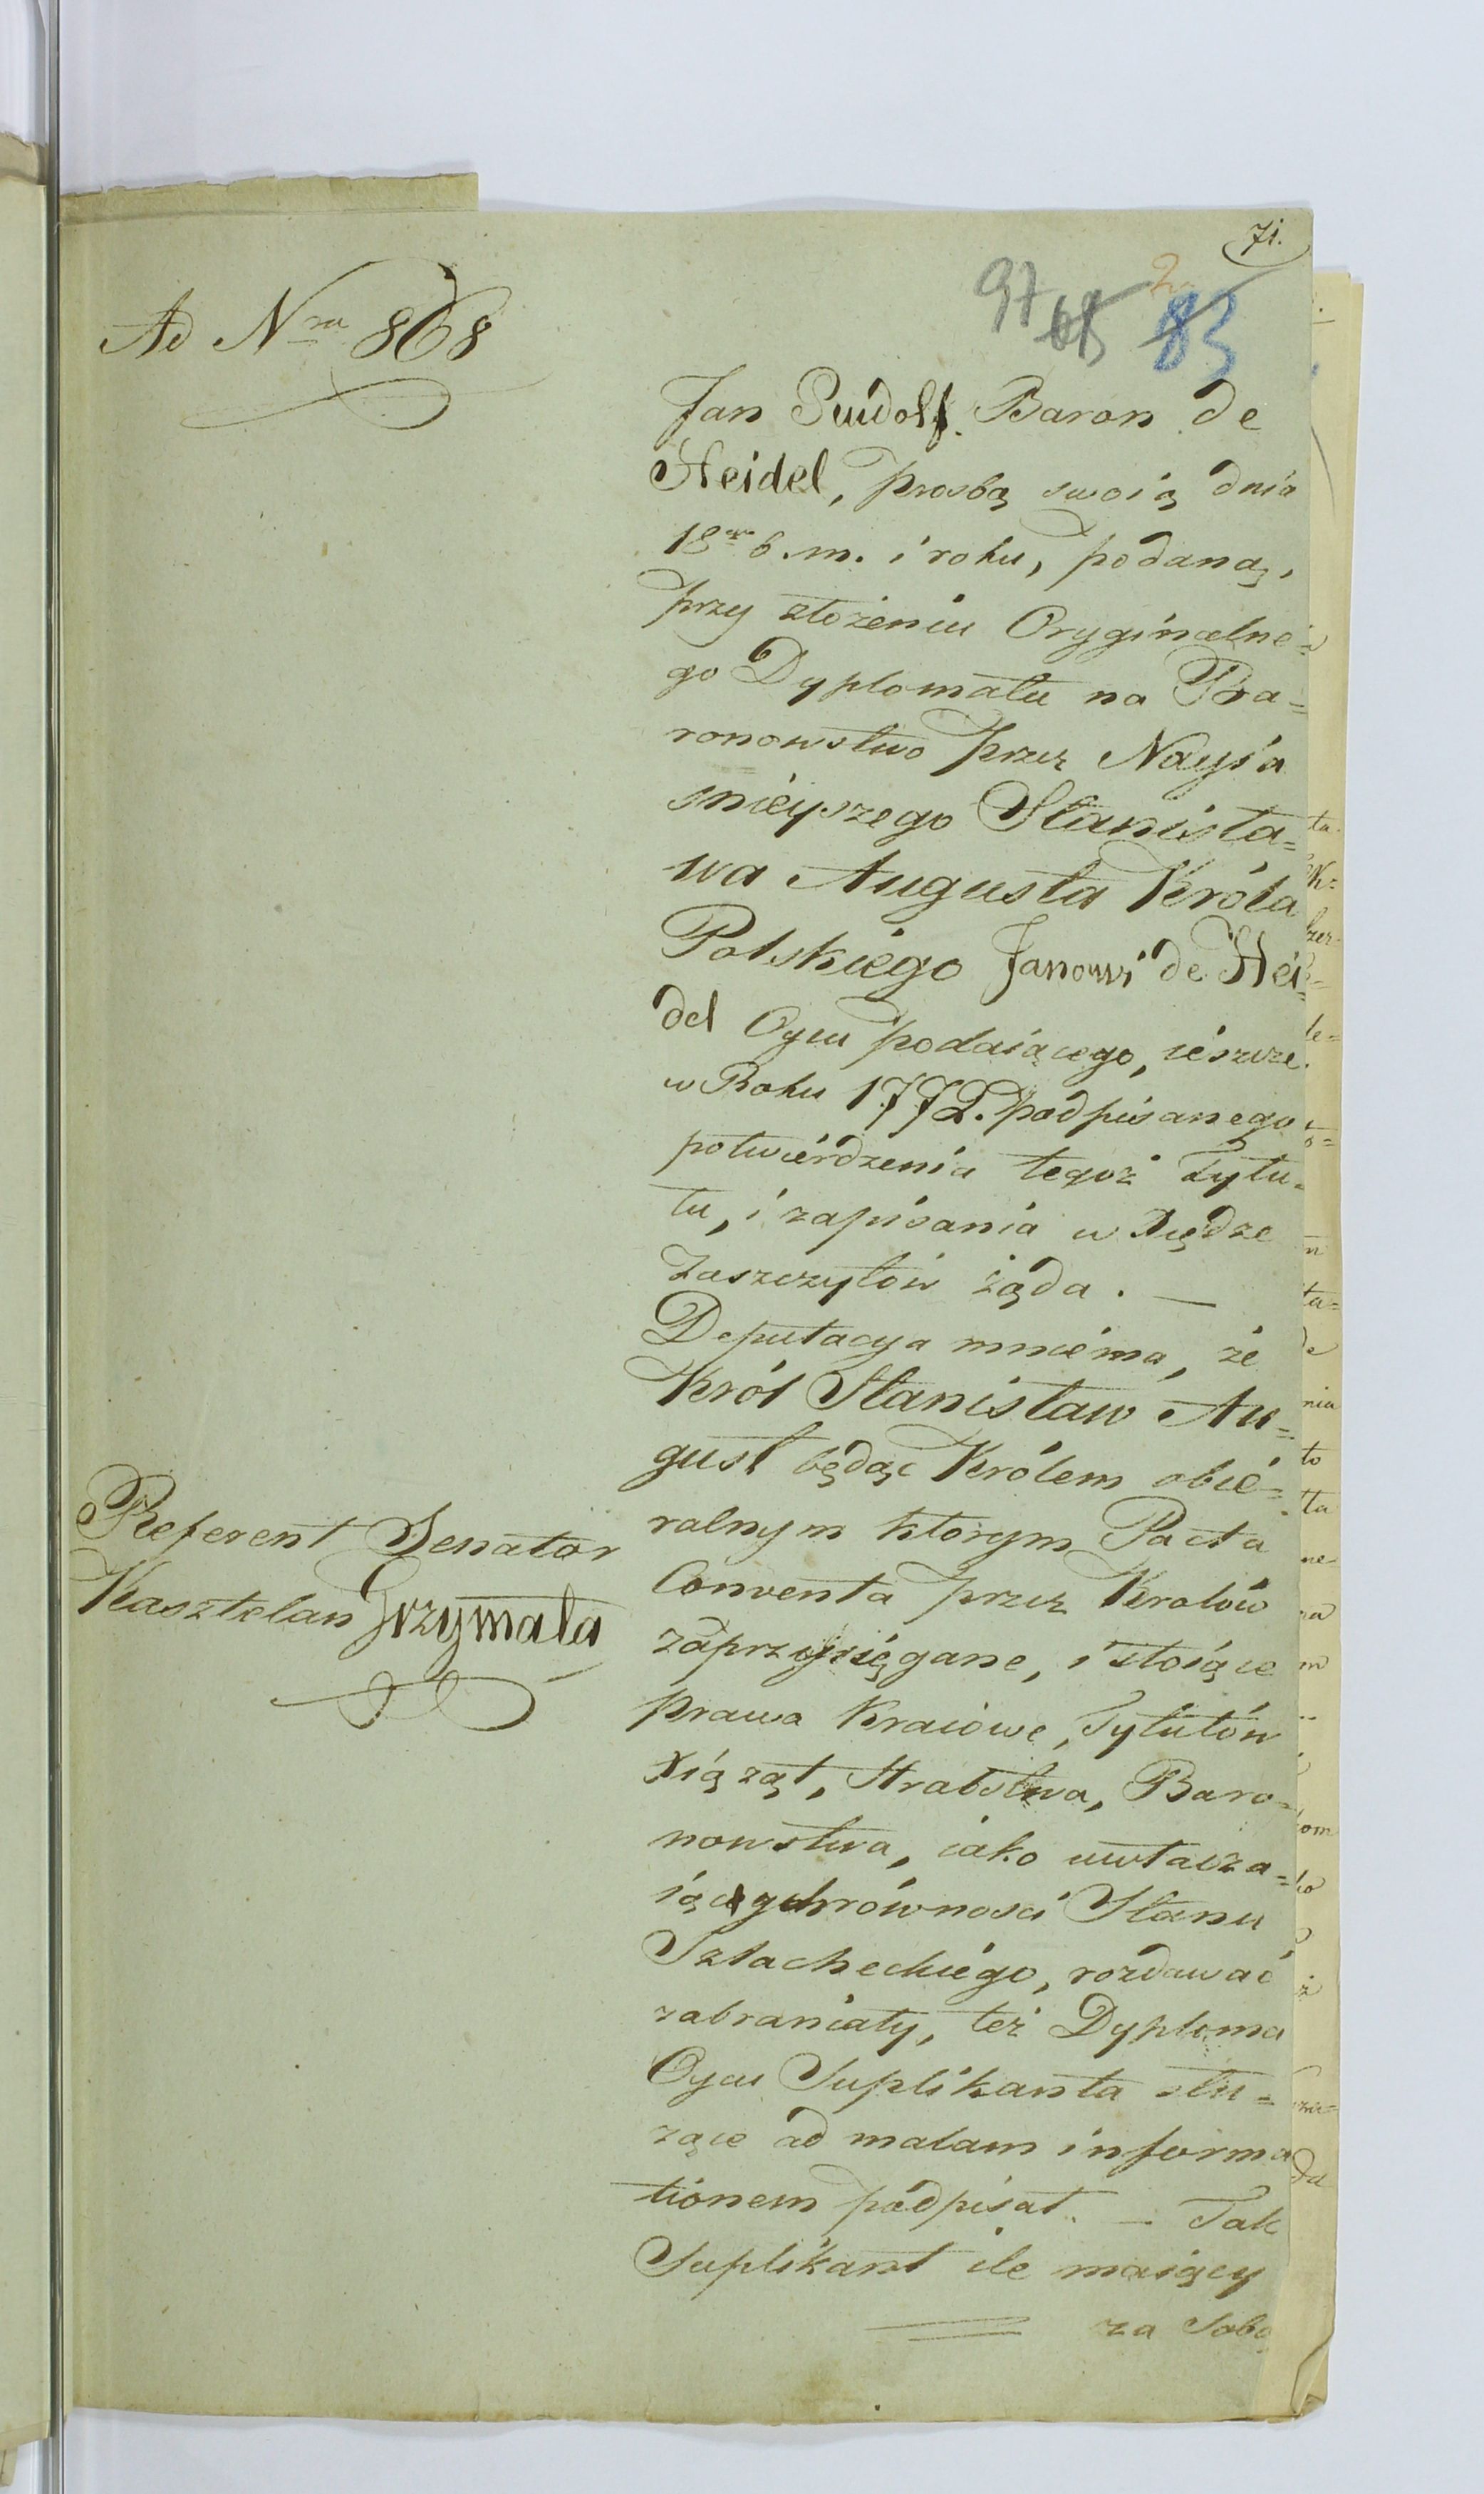 71.
97 68 83
2
Ad Nrm 868
Jan Rudolf Baron de
Heidel, prosbą swoią dnia
18go b. m. i roku, podaną,
przy złożeniu Oryginalne=
go Dyplomatu na Ba=
ronowstwo przez Nayia
snieyszego Stanisła=
wa Augusta Króla
Polskiego Janowi de Hei=
del Oycu podaiącego, ieszcze
w Roku 1772. podpisanego
potwierdzenia tegoż Tytu=
łu, i zapisania w Xiędze
Zaszczytów żąda. —
Deputacya mniema, że
Król Stanisław Au=
gust będąc Królem obie=
ralnym którym Pacta
Conventa przez Królów
zaprzysięgane, i stoiące
prawa Kraiowe, Tytułów
Xiążąt, Hrabstwa, Baro=
nowstwa, iako uwłacza=
iących równości Stanu
Szlacheckiego, rozdawać
zabraniały, też Dyploma
Oycu Suplikanta słu=
żące ad malam informa
tionem podpisał. — Tak
Suplikant ile maiący
za Sobą
Referent Senator
Kasztelan Grzymała